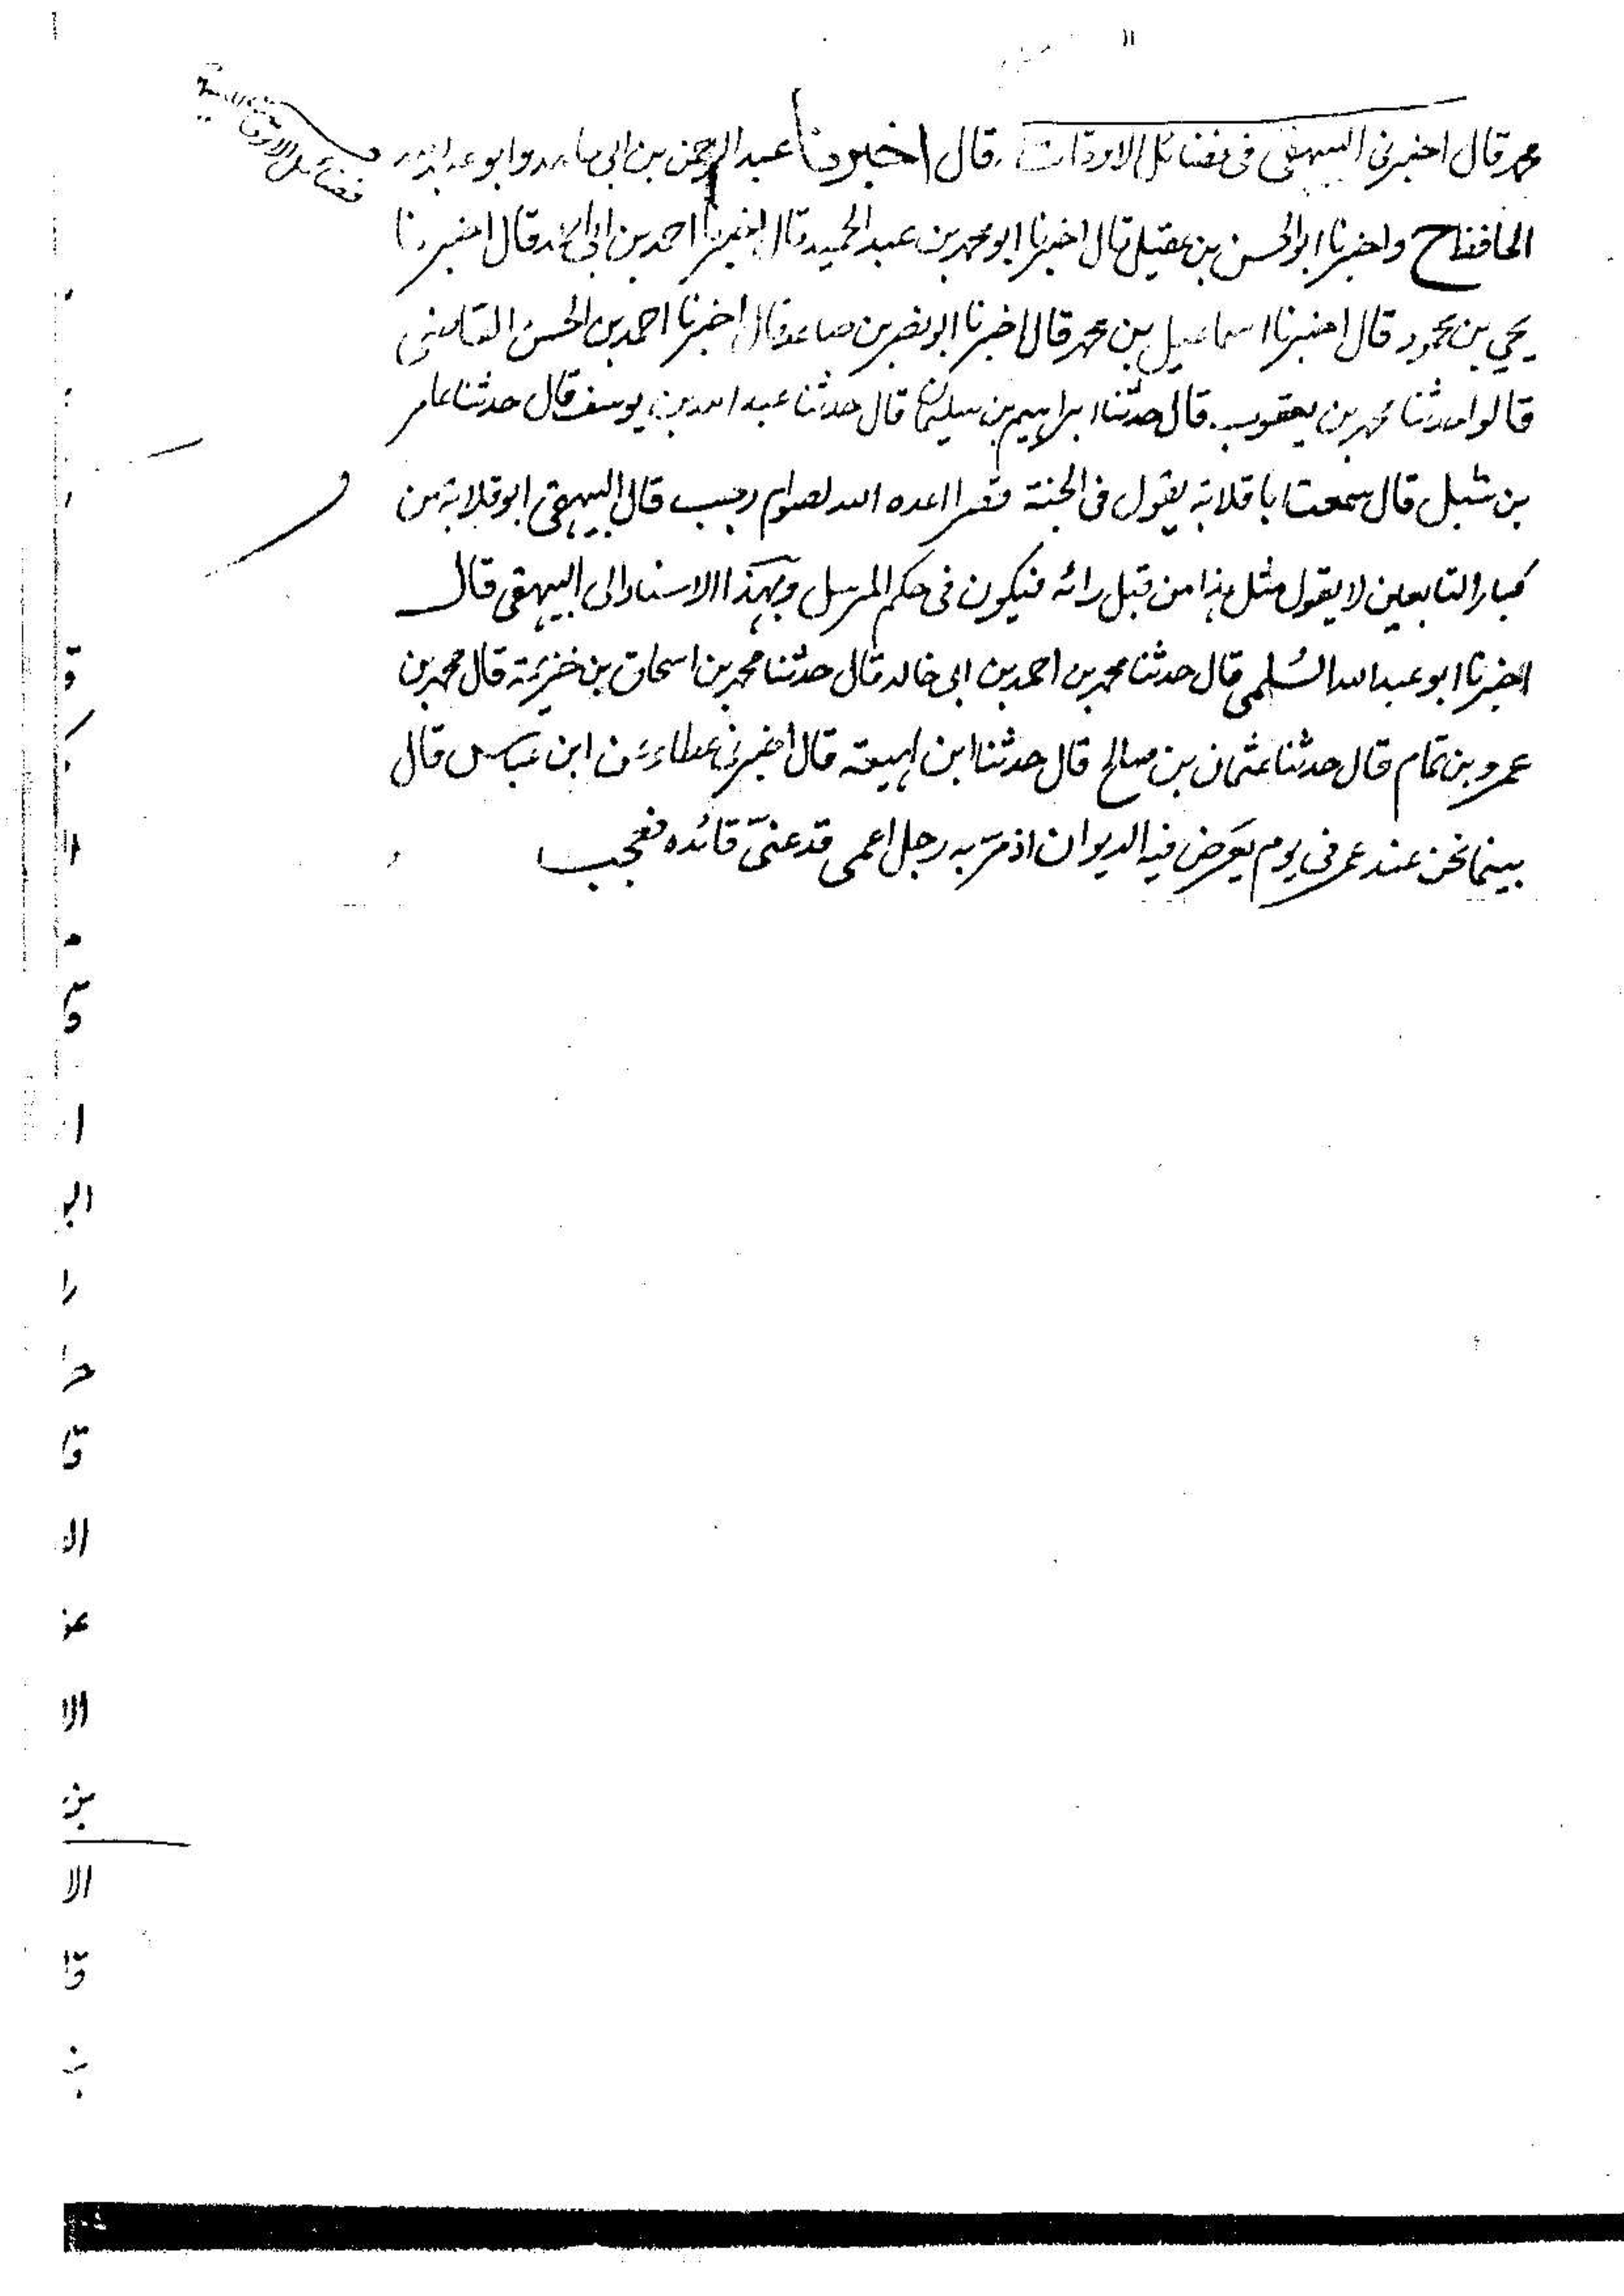 محمد قال اخبرني البيهقى فى فضائل الاوقات قال اخبرنا عبد الرحمن بن ابى حامد وابو عبد الله
الحافظ ح واخبرنا ابو الحسن بن عقيل قال اخبرنا ابو محمد بن عبد الحميد قال اخبرنا احمد بن ابى قال اخبرنا
يحي بن محمود قال اخبرنا اسماعيل بن محمد قال اخبرنا ابو نصر بن صاعد قال اخبرنا احمد بن الحسن القاضى
قالوا حدثنا محمد بن يعقوب قال حدثنا ابراهيم بن سليمان قال حدثنا عبد الله بن يوسف قال حدثنا عامر
بن شبل قال سمعت ابا قلابة يقول فى الجنة قصر اعده الله لصوام رجب قال البيهقى ابو قلابة من
كبار التابعين لا يقول مثل هذا من قبل رائه فيكون فى حكم المرسل وبهذا الاسناد الى البيهقى قال
اخبرنا ابو عبد الله السُلمى قال حدثنا محمد بن احمد بن ابى خالد قال حدثنا محمد بن اسحاق بن خزيمة قال محمد بن
عمرو بن تمام قال حدثنا عثمان بن صالح قال حدثنا ابن لهيعة قال اخبرنى عطاء عن ابن عباس قال
بينما نحن عند عمر فى يوم يعرض فيه الديوان اذ مرّ به رجل اعمى قد عنىّ قائده فعجب
فضائل الاوقات